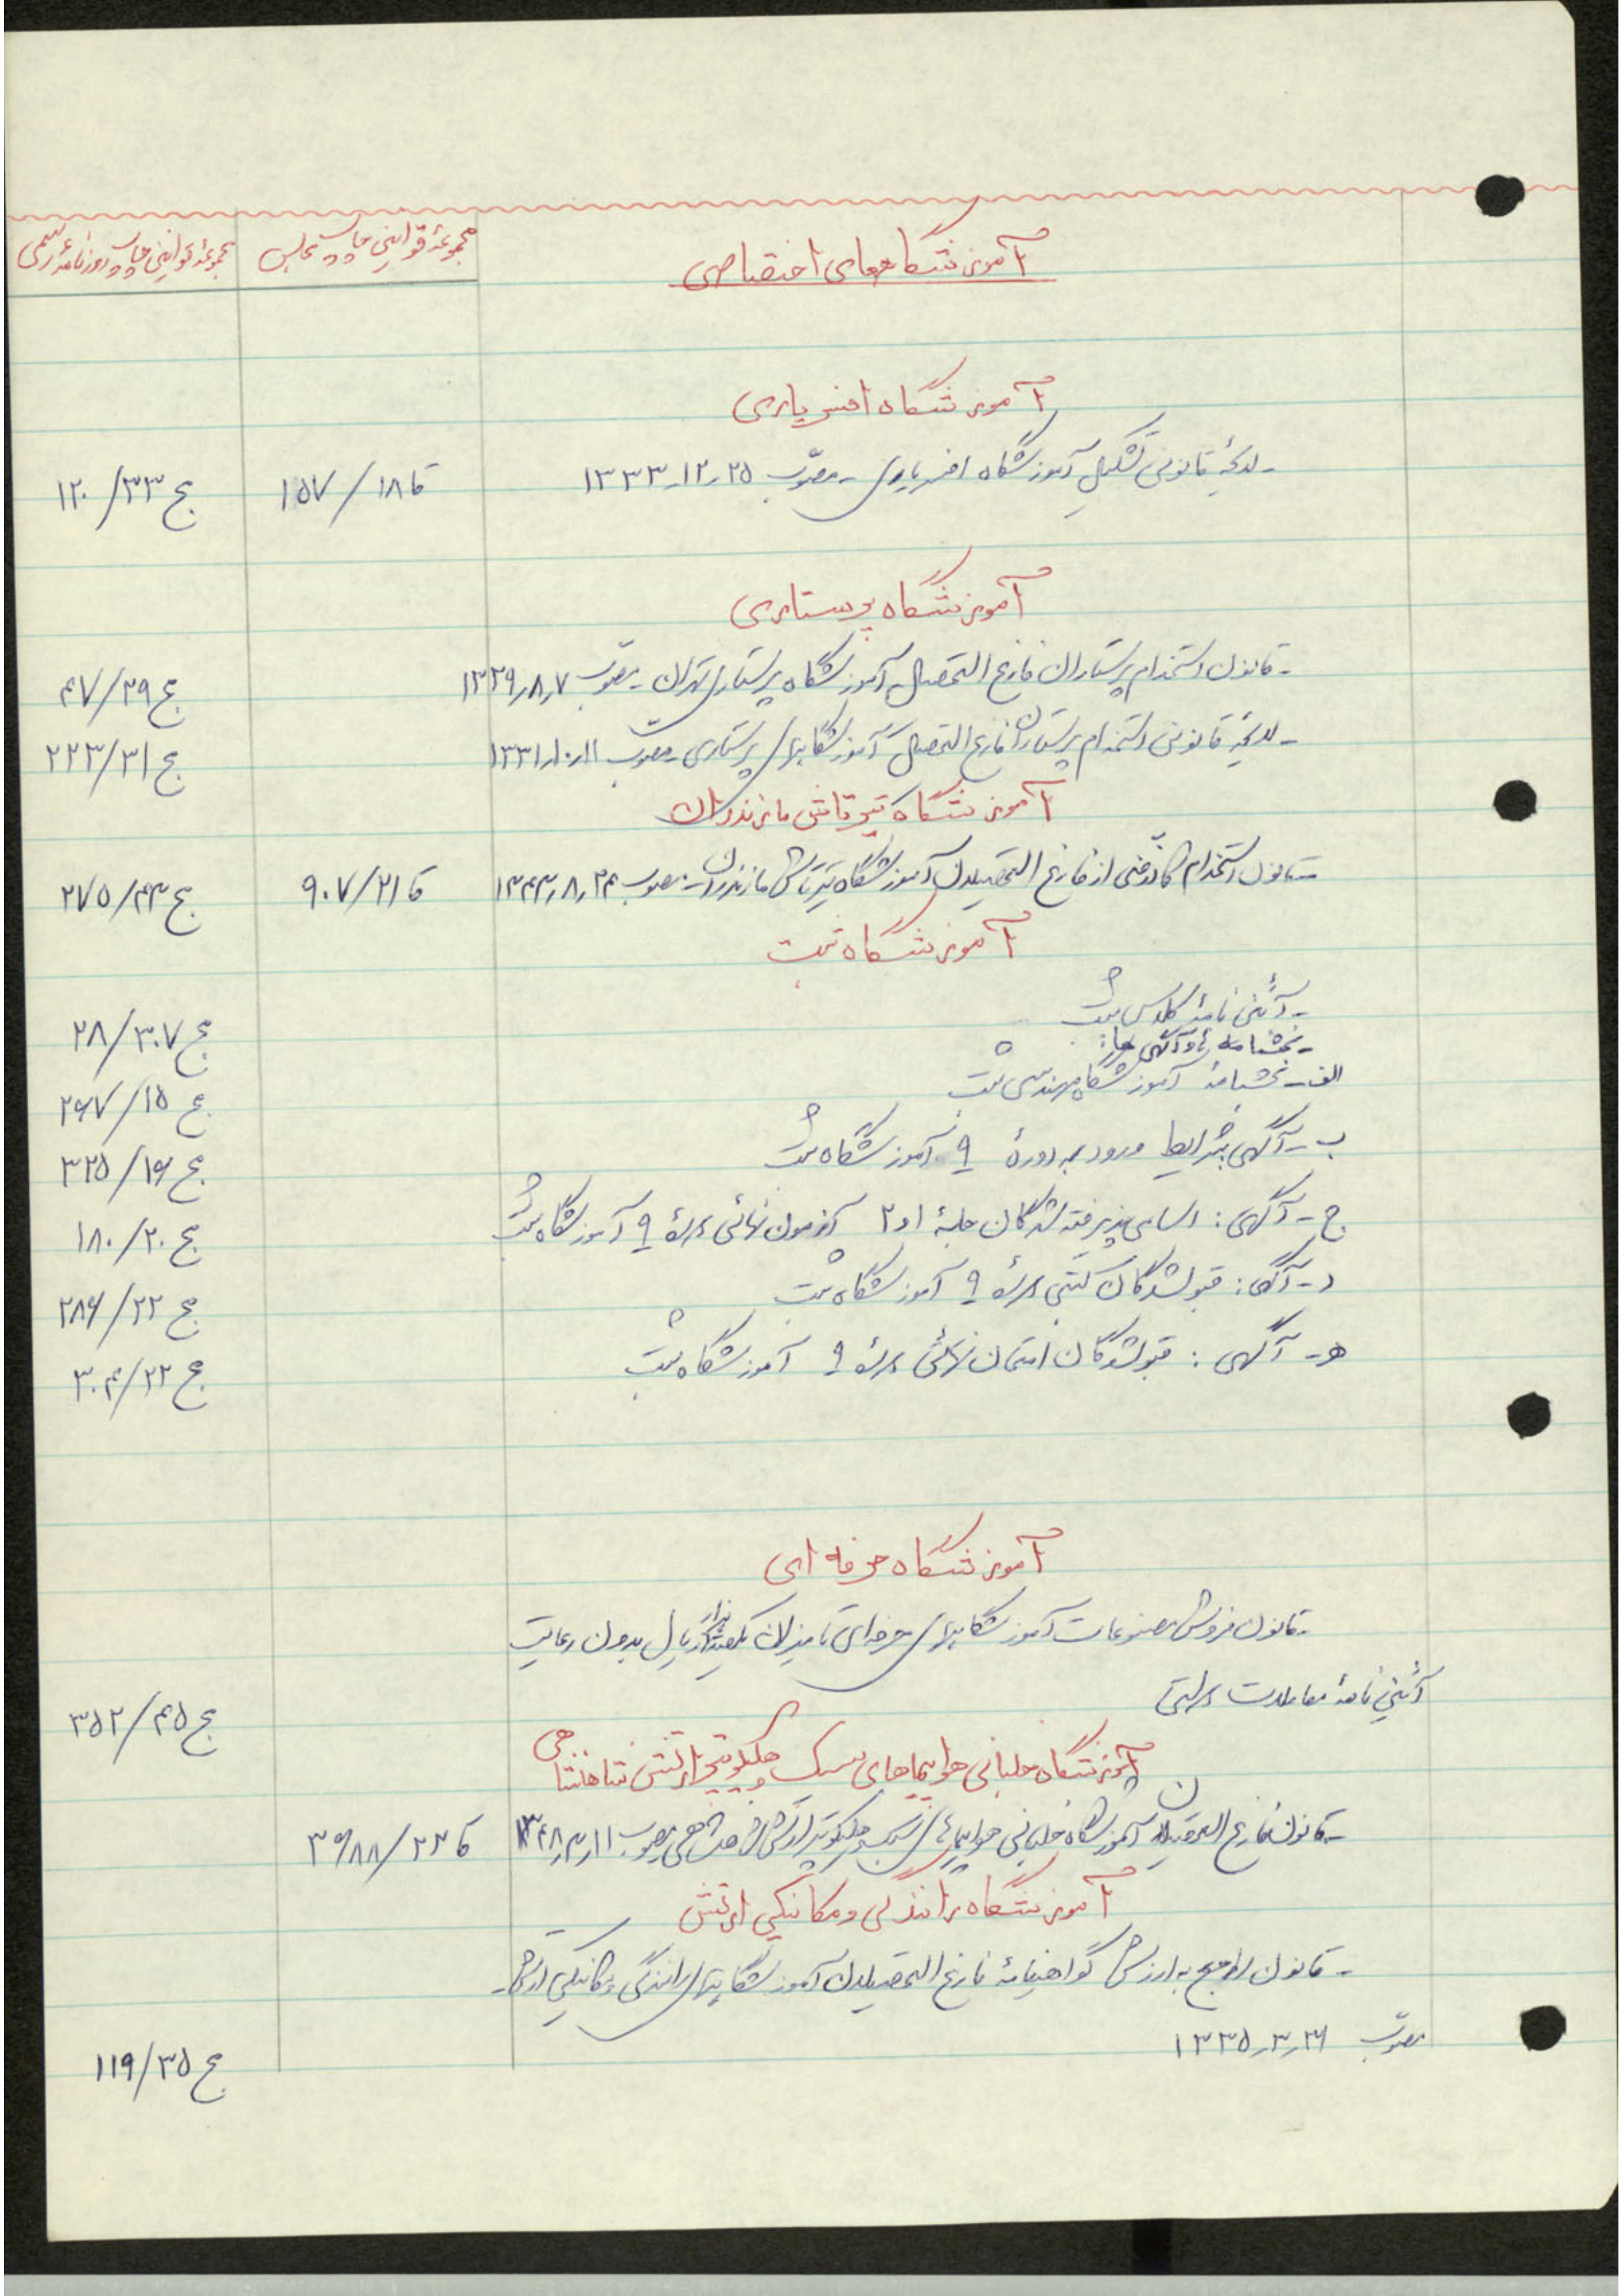 آموزشگاههای اختصاصی
مجموعهٔ قوانین چاپ مجلس
مجموعهٔ قوانین چاپ روزنامهٔ رسمی
آموزشگاه افسریاری
- لایحهٔ قانونی تشکیل آموزشگاه افسریاری - مصوّب ۲۵-۱۲-۱۳۳۳ قا ۱۸/۱۵۷ ج ۳۳/۱۲۰
آموزشگاه پرستاری
- قانون استخدام پرستاران فارغ التحصیل آموزشگاه پرستاری تهران - مصوّب ۷ر۸ر۱۳۲۹ ج ۲۹/۴۷
- لایحهٔ قانونی استخدام پرستاران فارغ التحصیل آموزشگاههای پرستاری - مصوب ۱۱ر۱۰ر۱۳۳۱ ج ۳۱/۲۲۳
آموزشگاه تیرتاش مازندران
- قانون استخدام کادر فنی از فارغ التحصیلان آموزشگاه تیرتاش مازندران - مصوب ۲۴ر۸ر۱۳۴۳ قا ۲۱/۹۰۷ ج ۴۳/۲۷۵
آموزشگاه ثبت
- آئین نامهٔ کلاس ثبت ج ۳۰۷/۲۸
- بخشنامه و آگهی ها:
الف - بخشنامهٔ آموزشگاه مهندسی ثبت ج ۱۵/۲۶۷
ب - آگهی شرایط ورود به دورهٔ ۹ آموزشگاه ثبت ج ۱۶/۳۲۵
ج - آگهی: اسامی پذیرفته شدگان جلسهٔ ۱و۲ آزمون نهائی دورهٔ ۹ آموزشگاه ثبت ج ۲۰/۱۸۰
د - آگهی: قبولشدگان کتبی دورهٔ ۹ آموزشگاه ثبت ج ۲۲/۲۸۶
ه - آگهی: قبولشدگان امتحان نهائی دورهٔ ۹ آموزشگاه ثبت ج ۲۲/۳۰۴
آموزشگاه حرفه ای
- قانون فروش مصنوعات آموزشگاههای حرفه ای تا میزان یکصد هزار ریال بدون رعایت
آئین نامهٔ معاملات دولتی ج ۴۵/۳۵۲
آموزشگاه خلبانی هواپیماهای سبک و هلیکوپتر ارتش شاهنشاهی
- قانون فارغ التحصیلان آموزشگاه خلبانی هواپیماهای سبک و هلیکوپتر ارتش شاهنشاهی مصوب ۱۱ر۳ر۱۳۴۸ قا ۲۲/۳۶۸۸
آموزشگاه رانندگی و مکانیکی ارتش
- قانون راجع به ارزش گواهینامهٔ فارغ التحصیلان آموزشگاههای رانندگی و مکانیکی ارتش -
مصوّب ۳۱ر۳ر۱۳۳۵ ج ۳۵/۱۱۹